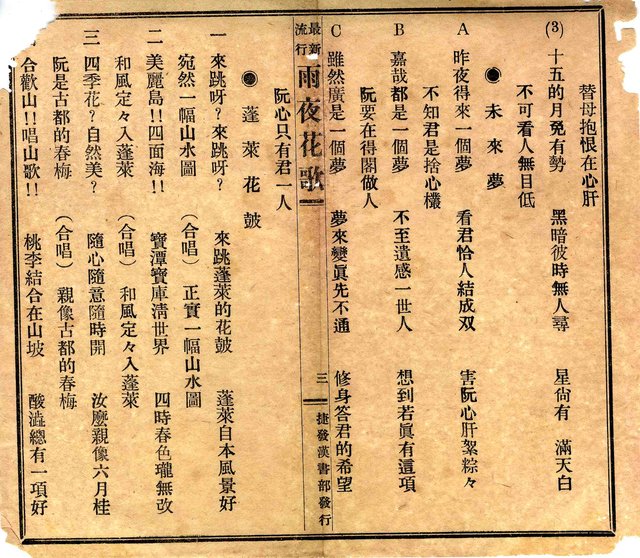 替母抱恨在心肝
(3) 十五的月兔有勢 黑暗彼時無人尋 星尙有 滿天白
不可看人無目低
● 未來夢
A 昨夜得來一個夢 看君恰人結成双 害阮心肝絮粽々
不知君是捨心欉
B 嘉哉都是一個夢 不至遺感一世人 想到若眞有這項
阮要在得閣做人
C 雖然廣是一個夢 夢來變眞先不通 修身答君的希望
阮心只有君一人
最新流行 雨夜花歌 三 捷發漢書部發行
● 蓬萊花鼓
一 來跳呀？來跳呀？ 來跳蓬萊的花鼓 蓬萊自本風景好
宛然一幅山水圖 (合唱) 正實一幅山水圖
二 美麗島!!四面海!! 寶潭寶庫淸世界 四時春色瓏無改
和風定々入蓬萊 (合唱) 和風定々入蓬萊
三 四季花？自然美？ 隨心隨意隨時開 汝麼親像六月桂
阮是古都的春梅 (合唱) 親像古都的春梅
合歡山!!唱山歌!! 桃李結合在山坡 酸澁總有一項好